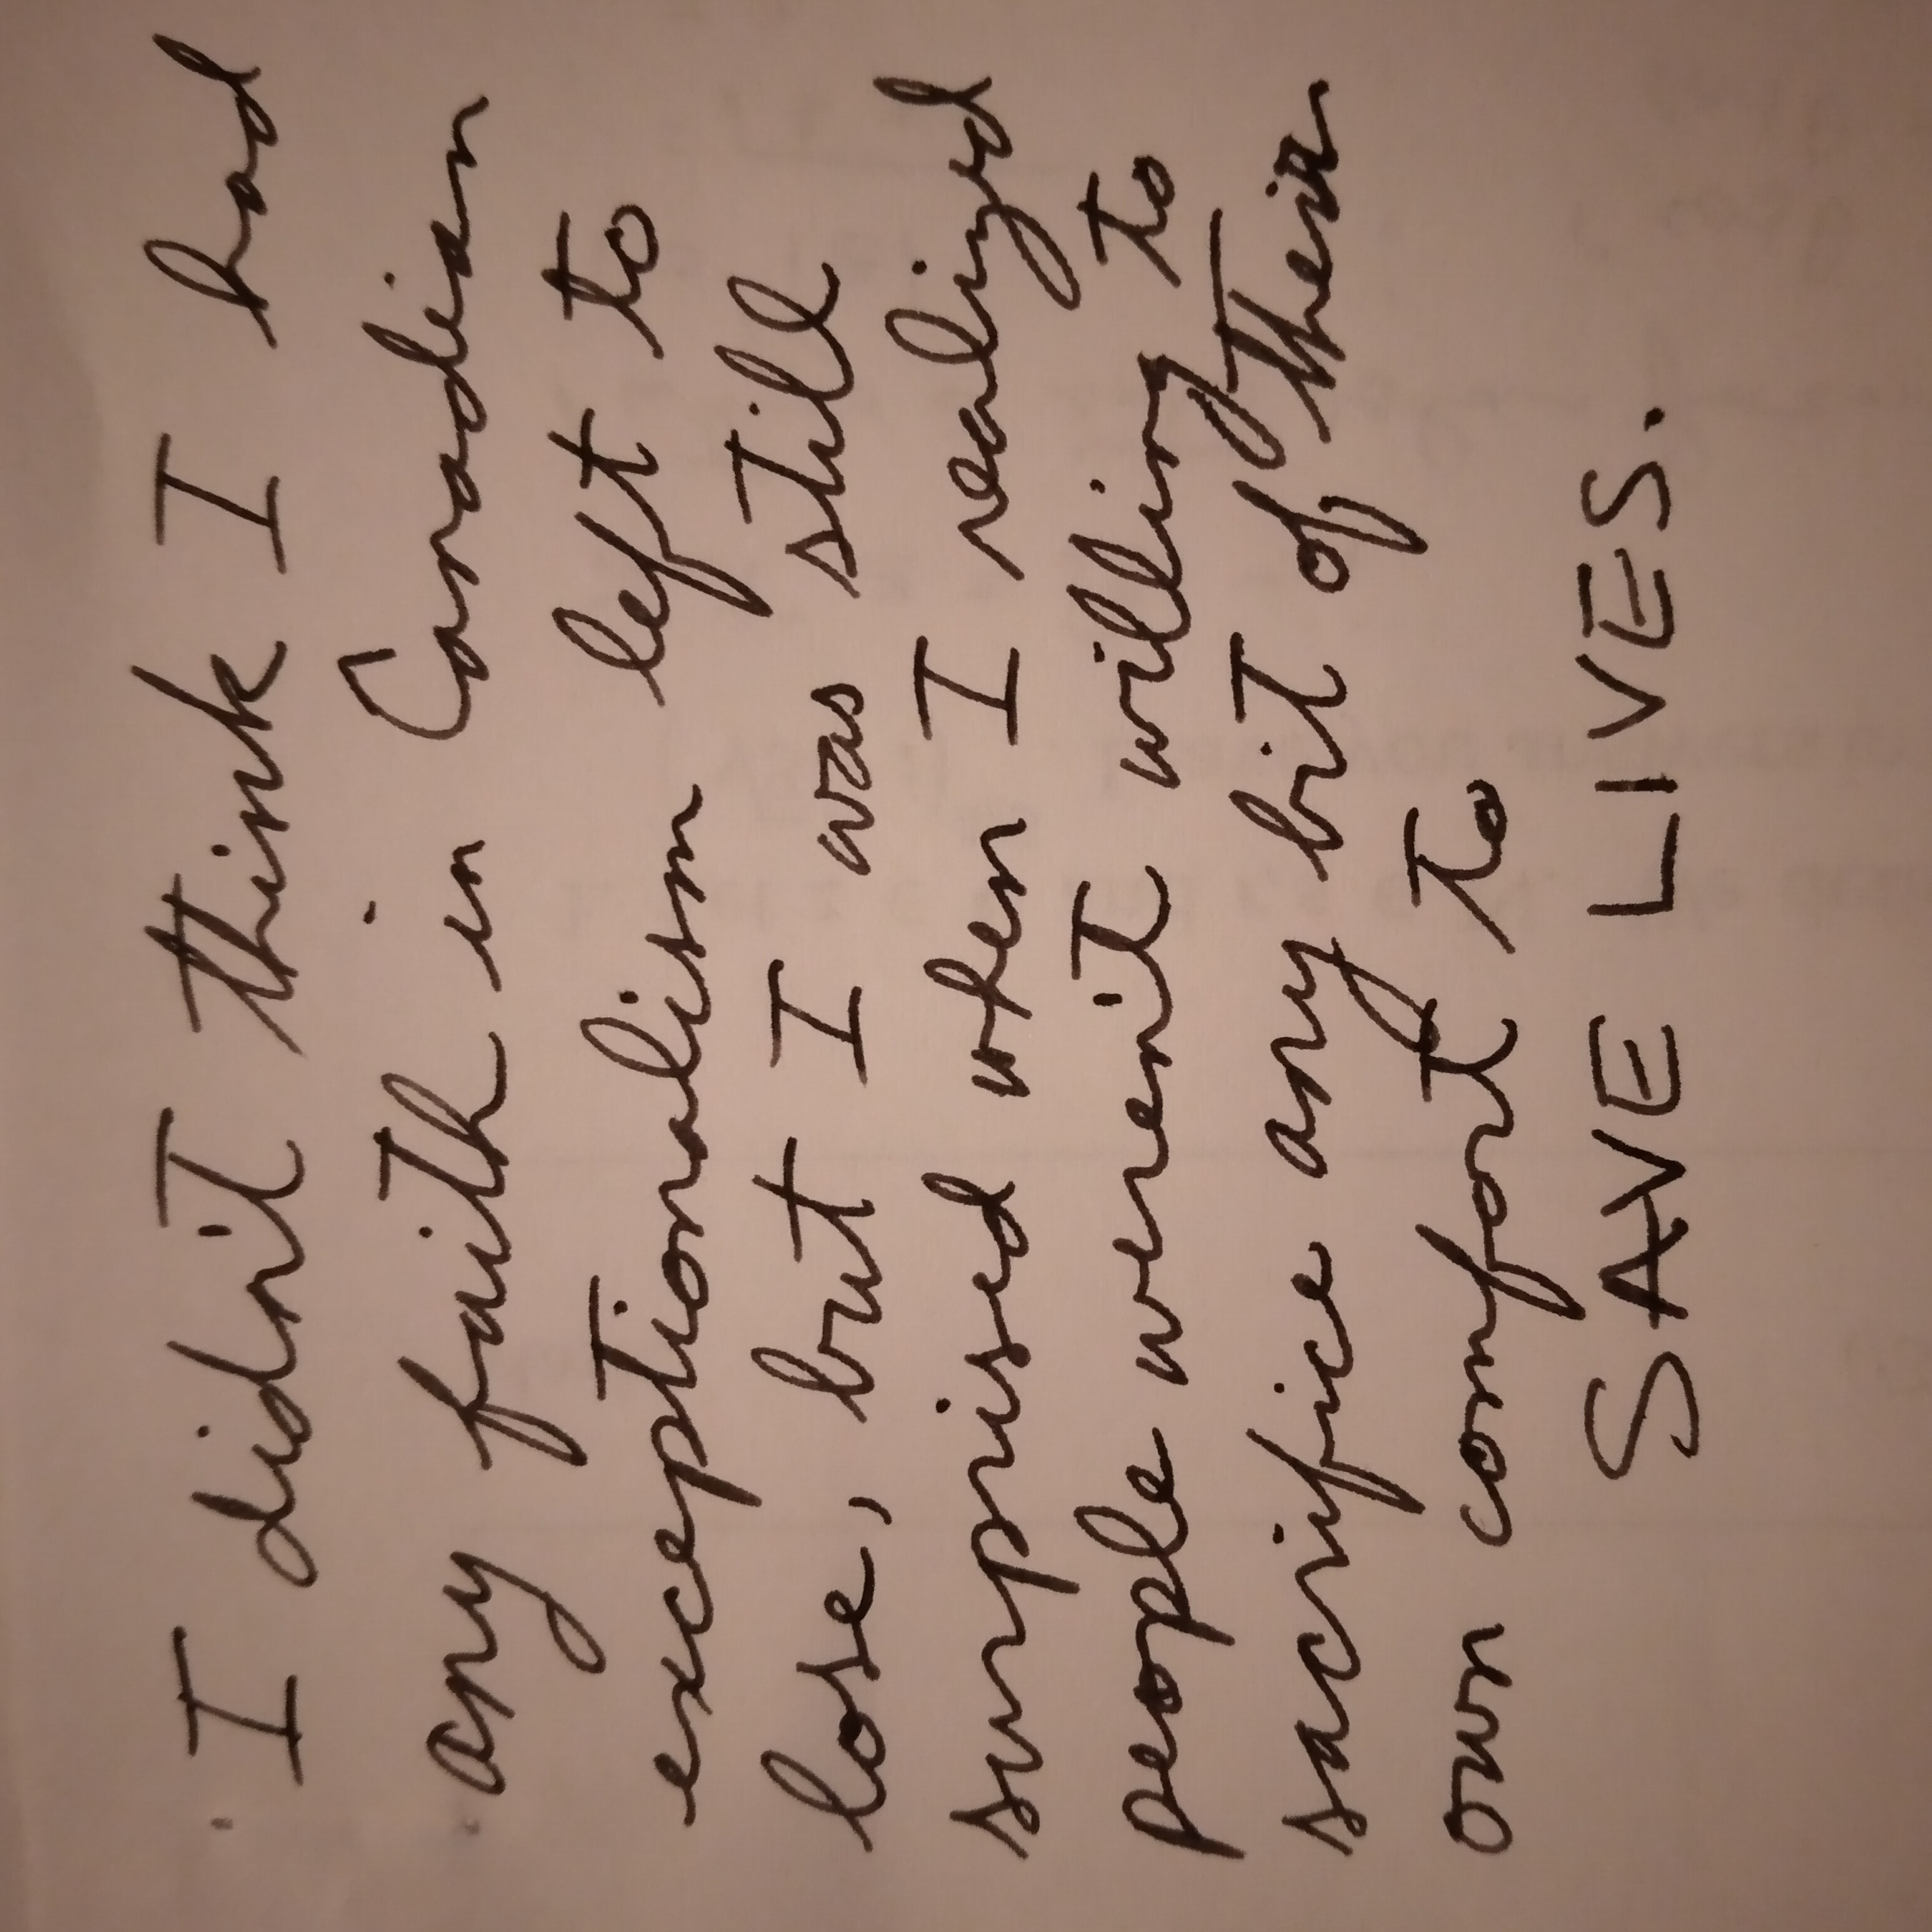 I didn't think I had
any faith in Canadian
exceptionalism left to
lose, but I was still
surprised when I realized
people weren't willing to
sacrifice any bit of their
own comfort to
SAVE LIVES.